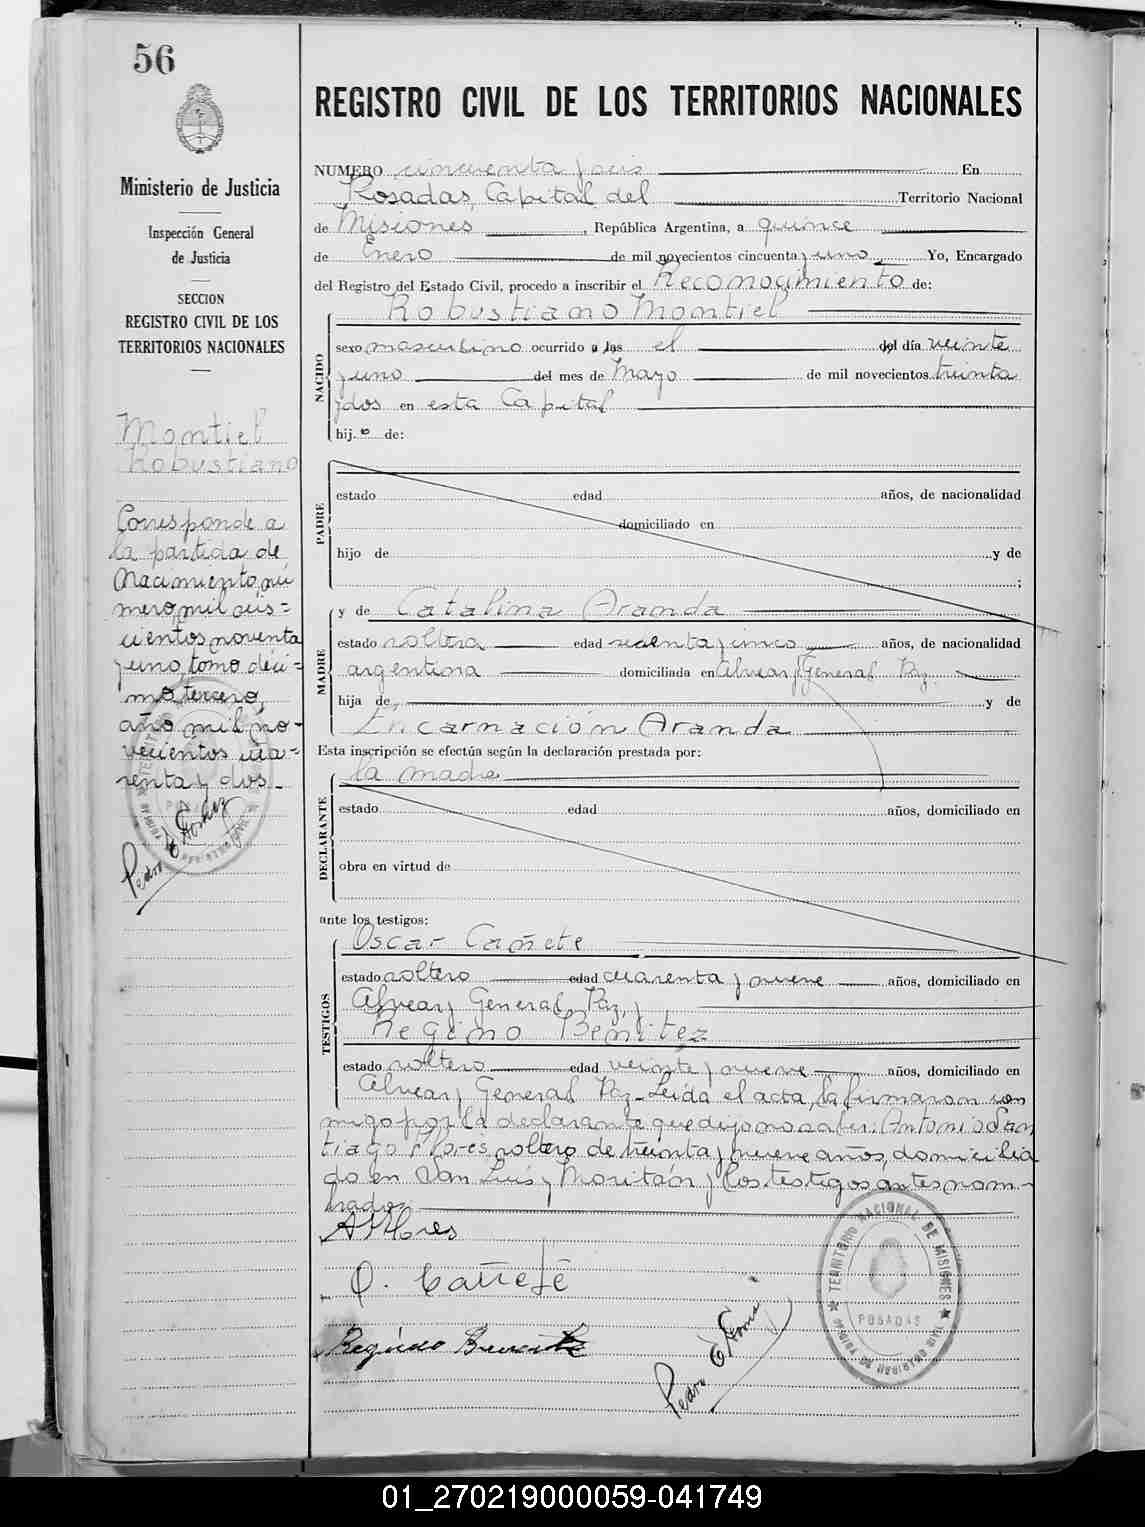 56
REGISTRO CIVIL DE LOS TERRITORIOS NACIONALES
Ministerio de Justicia
Inspección General
de Justicia
SECCION
REGISTRO CIVIL DE LOS
TERRITORIOS NACIONALES
Montiel
Robustiano
Corresponde a
la partida de
Nacimiento nú
mero mil seis=
cientos noventa
y uno, tomo déci=
mo tercero,
año mil no-
vecientos cua=
renta y dos.
Pedro E Gomez
NUMERO cincuenta y seis En
Posadas, Capital del Territorio Nacional
de Misiones, República Argentina, a quince
de Enero de mil novecientos cincuenta y uno Yo, Encargado
del Registro del Estado Civil, procedo a inscribir el Reconocimiento de:
NACIDO
Robustiano Montiel
sexo masculino ocurrido a las el del día veinte
y uno del mes de Mayo de mil novecientos treinta
y dos en esta Capital
hijo de:
PADRE
estado edad años, de nacionalidad
domiciliado en
hijo de y de
;
MADRE
y de Catalina Aranda
estado soltera edad y cinco años, de nacionalidad
argentina domiciliada en Alvear y General Paz.
hija de y de
Encarnación Aranda
Esta inscripción se efectúa según la declaración prestada por:
la madre
DECLARANTE
estado edad años, domiciliado en
obra en virtud de
ante los testigos:
TESTIGOS
Oscar Cañete
estado soltero edad cuarenta y nueve años, domiciliado en
Alvear y General Paz, y
Regino Benitez
estado soltero edad veinte y nueve años, domiciliado en
Alvear y General Paz.-Leída el acta, la firmaron con
migo por la declarante que dijo no saber: Antonio San
tiago Flores soltero de treinta y nueve años, domicilia
do en San Luis y Moritán y los testigos antes nom-
brados.
A S Flores
O. Cañete
Regino Benitez
Pedro E Gomez
TERRITORIO NACIONAL DE MISIONES
POSADAS
01_270219000059-041749